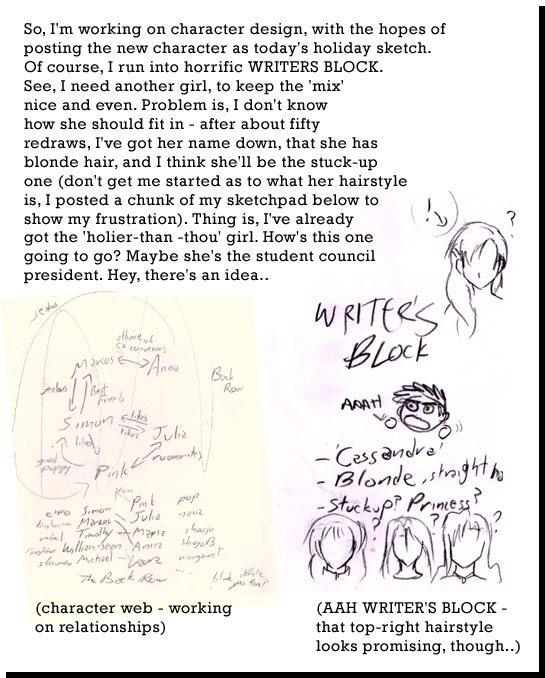 So, I'm working on character design, with the hopes of
posting the new character as today's holiday sketch.
Of course, I run into horrific WRITERS BLOCK.
See, I need another girl, to keep the 'mix'
nice and even. Problem is, I don't know
how she should fit in - after about fifty
redraws, I've got her name down, that she has
blonde hair, and I think she'll be the stuck-up
one (don't get me started as to what her hairstyle
is, I posted a chunk of my sketchpad below to
show my frustration). Thing is, I've already
got the 'holier-than -thou' girl. How's this one
going to go? Maybe she's the student council
president. Hey, there's an idea..
?
WRITER'S
BLOCK
AAAH
- 'Cassandra'
- Blonde, straight
- Stuckup? Princess?
? ? ?
jealous
Marcus
Anna
Back
Row
jealous
Best
Friends
Simon
likes
likes
Julia
good
puppy
Pink
roommates
Ken
emo Simon Pink pop
Marcus Julia nana
Timothy Maria shoujo
William Sean Anna
Michael Laura
The Back Row
(character web - working
on relationships)
(AAH WRITER'S BLOCK -
that top-right hairstyle
looks promising, though..)